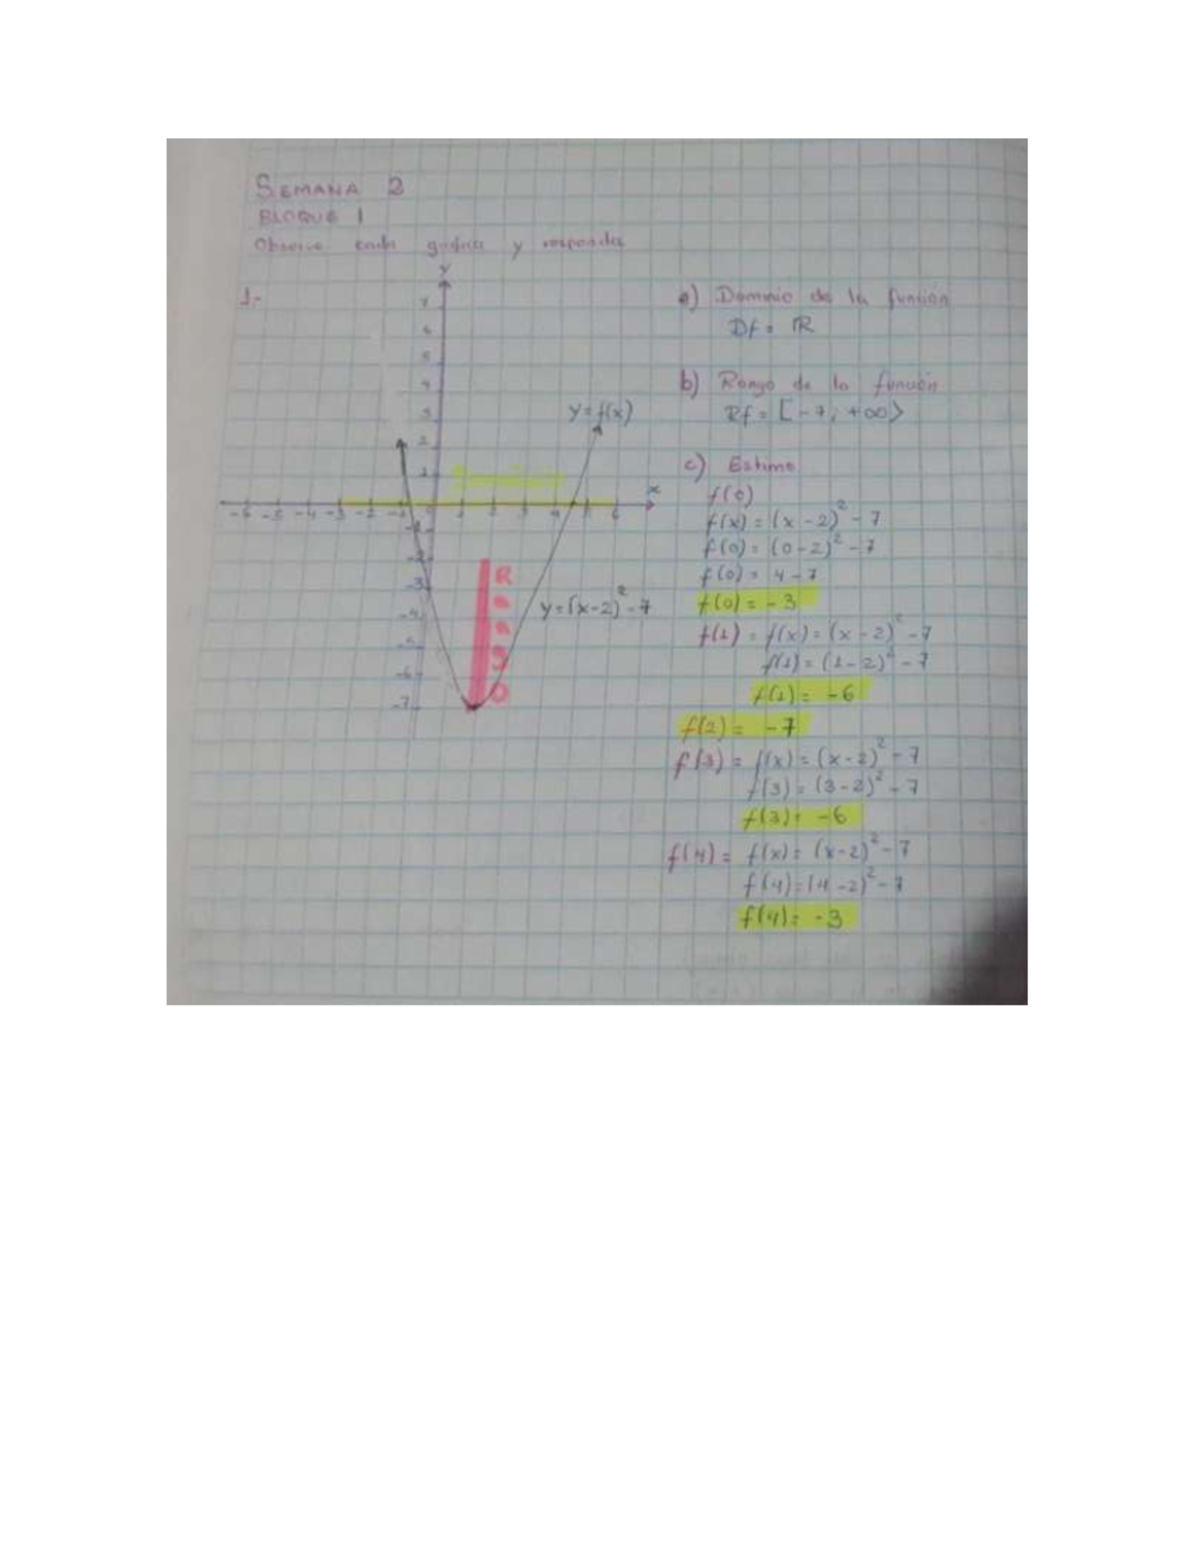 SEMANA 2
BLOQUE 1
Observe cada gráfica y responda
1.-
y
7
6
5
4
3
2
1
y=f(x)
x
-6 -5 -4 -3 -2 -1 0 1 2 3 4 5 6
-1
-2
-3
-4
-5
-6
-7
Rango
y=(x-2)²-7
a) Dominio de la función
Df= ℝ
b) Rango de la función
Rf= [-7, +∞⟩
c) Estime
f(0)
f(x)=(x-2)²-7
f(0)=(0-2)²-7
f(0)= 4-7
f(0)= -3
f(1)= f(x)=(x-2)²-7
f(1)=(1-2)²-7
f(1)= -6
f(2)= -7
f(3)= f(x)=(x-2)²-7
f(3)=(3-2)²-7
f(3)= -6
f(4)= f(x)=(x-2)²-7
f(4)=(4-2)²-7
f(4)= -3